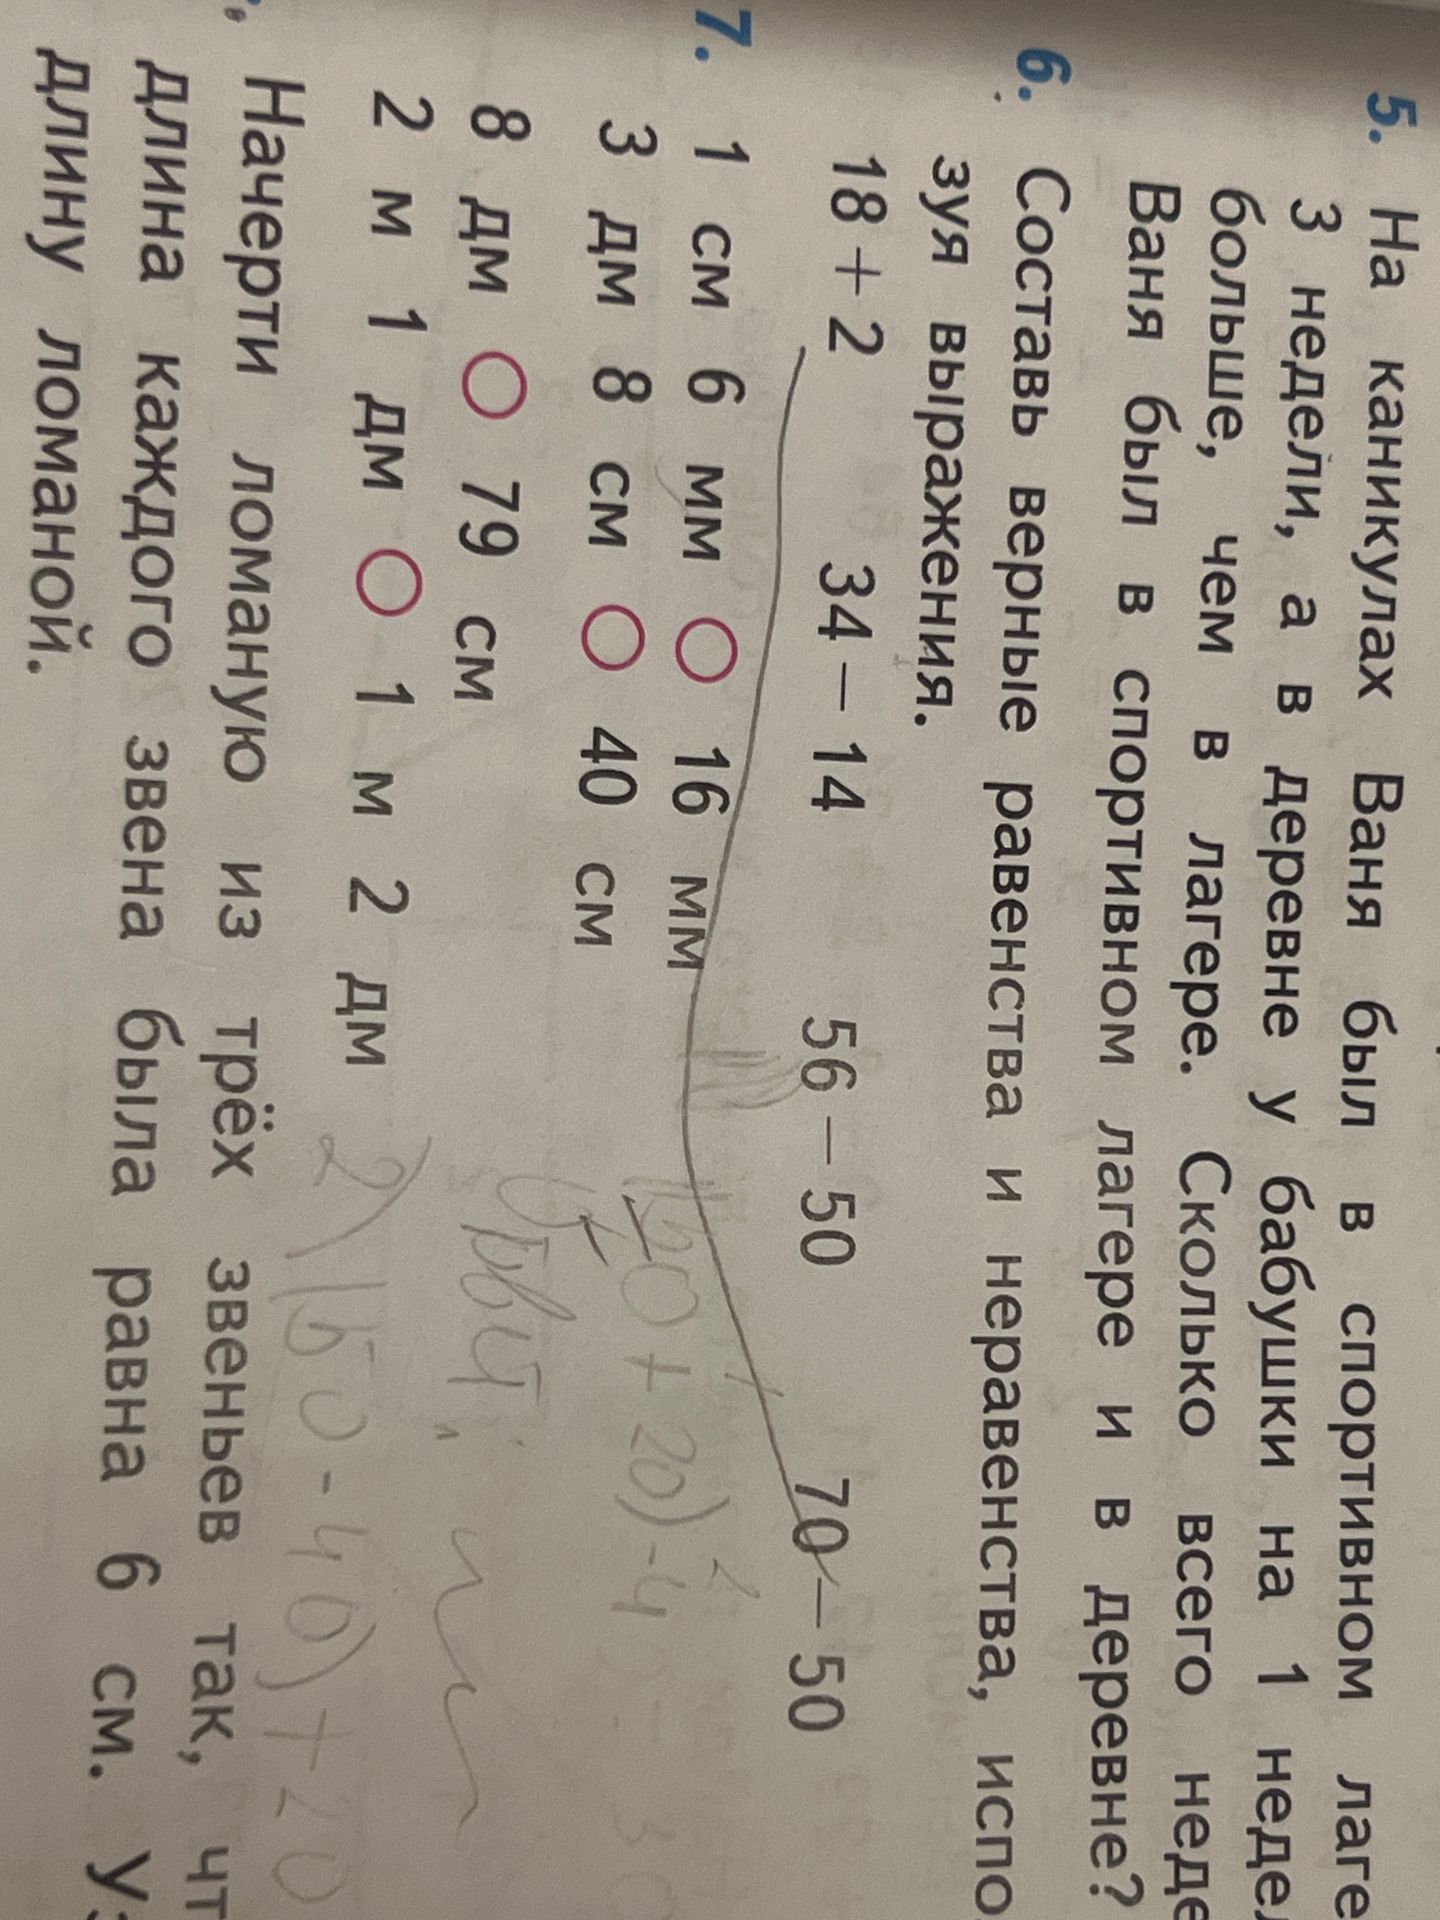 5. На каникулах Ваня был в спортивном лаге
3 недели, а в деревне у бабушки на 1 неде
больше, чем в лагере. Сколько всего неде
Ваня был в спортивном лагере и в деревне?
6. Составь верные равенства и неравенства, испо
зуя выражения.
18 + 2 34 − 14 56 − 50 70 − 50
7. 1 см 6 мм ○ 16 мм
3 дм 8 см ○ 40 см
8 дм ○ 79 см
2 м 1 дм ○ 1 м 2 дм
+ 20) - 4
2) 150 - 40) + 20
Начерти ломаную из трёх звеньев так, чт
длина каждого звена была равна 6 см. У
длину ломаной.